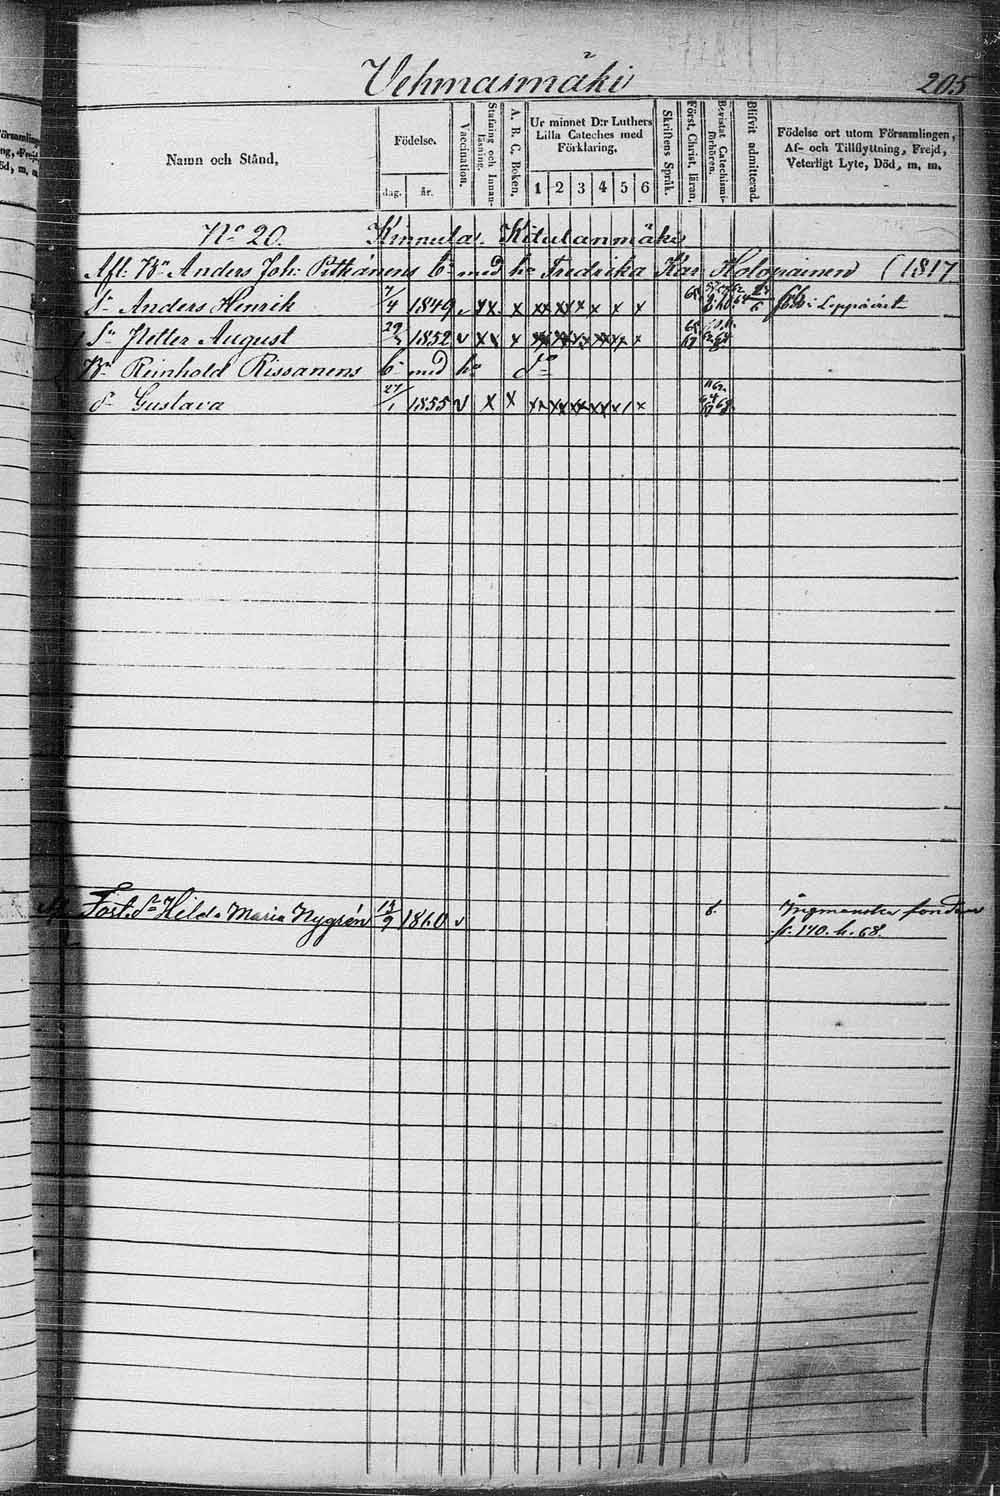 Vehmasmäki 205
Namn och Stånd,
Födelse.
dag.
år.
Vaccination.
Stafning och Innan-
läsning.
A. B. C. Boken.
Ur minnet D:r Luthers
Lilla Cateches med
Förklaring,
1 2 3 4 5 6
Skriftens Språk.
Först. Christ. läran.
Bevistat Catechismi-
förhören.
Blifvit admitterad.
Födelse ort utom Församlingen,
Af- och Tillflyttning, Frejd,
Veterligt Lyte, Död, m. m.
No 20. Kinnula. Kitulanmäki
Afl. Bn Anders Joh: Pitkänens b. med h. Fredrika Kar. Holopainen (1817
Sn Anders Henrik 7/4 1849 v x x x x x x x x x 24/6
Sn Petter August 29 1852 v x x x x x x x x x
Bn Reinhold Rissanens b. med h. do
dr Gustava 27/1 1855 v x x x x x x x x
Fost. dr Hilda Maria Nygrén 13/9 1860 v 6. Ingmanska fonden
fr. 170. h. 68.